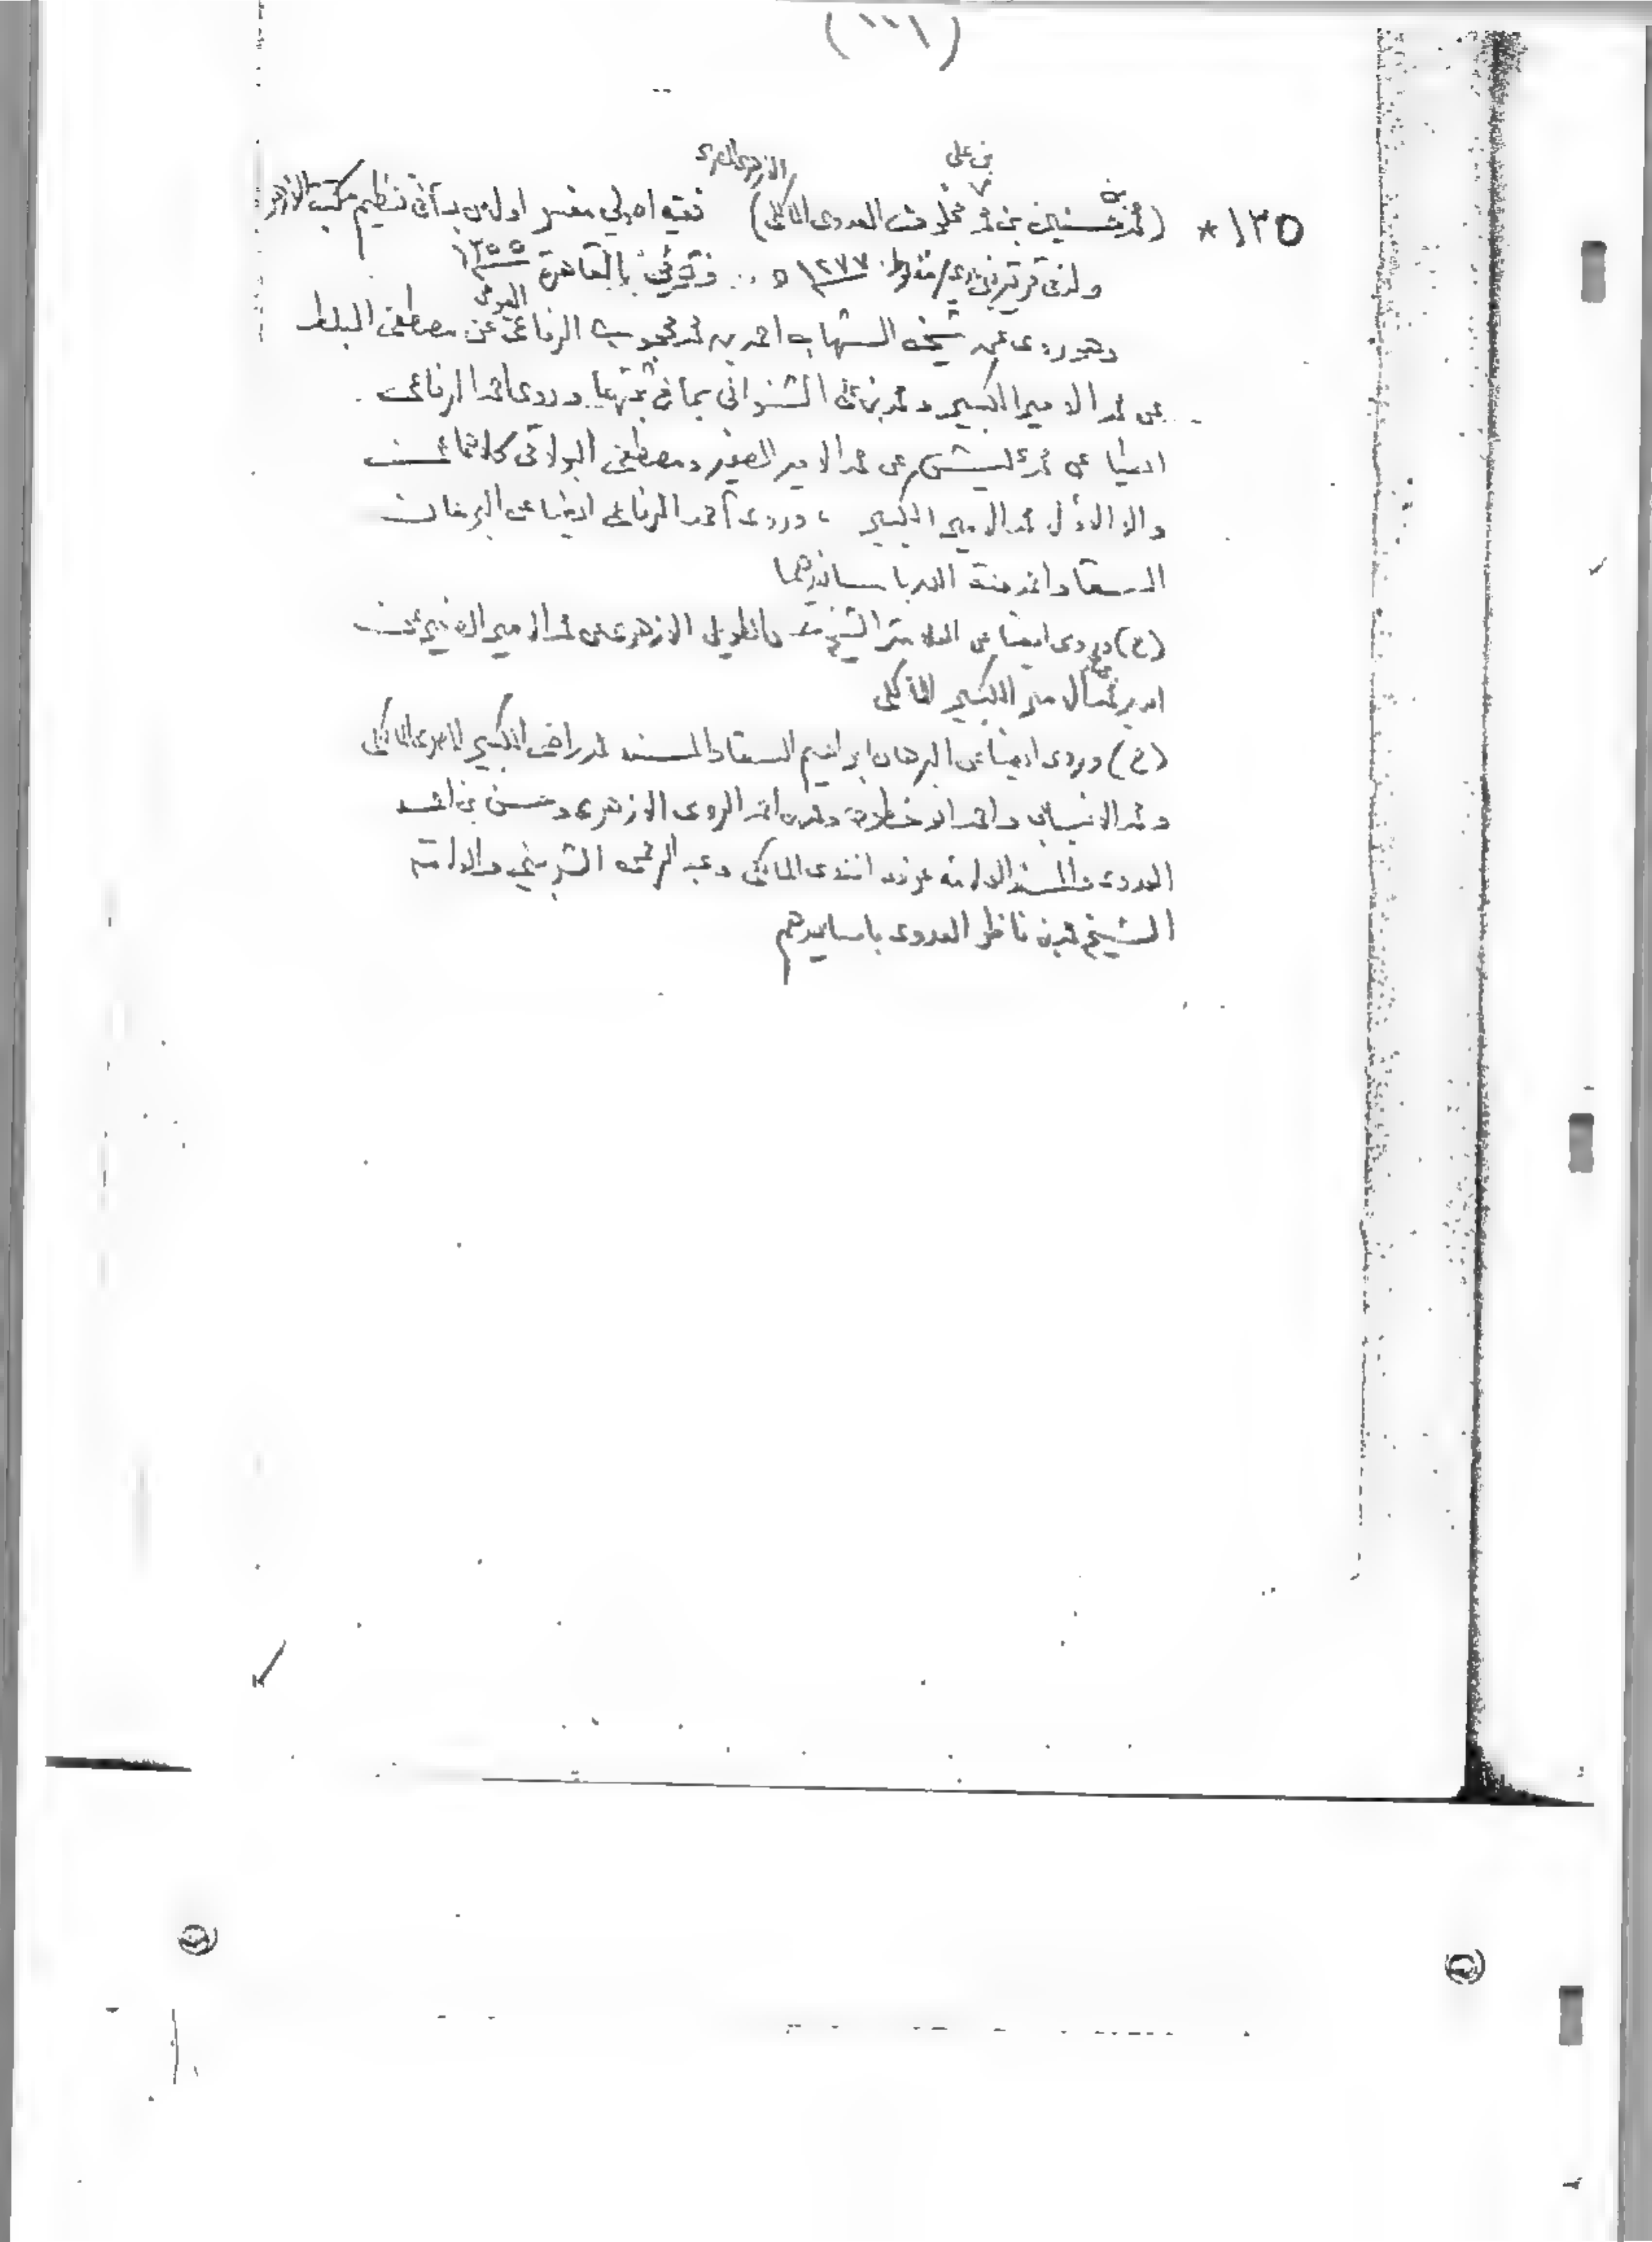 ١٣٥ * (محمد حسنين بن محمد بن علي مخلوف العدوي المالكي) الازهري المصري فقيه اصولي مفسر اول من بدأ في تنظيم مكتبة الازهر
ولد في قرية بني عدي / منفلوط ١٢٧٧ ه .. وتوفي بالقاهرة ١٣٥٥
وهو روى عن شيخه الشهاب احمد بن محمد محجوب الرفاعي الفيومي عن مصطفى المبلط
عن محمد الامير الكبير ومحمد بن علي الشنواني بما في ثبتهما وروى احمد الرفاعي
ايضا عن محمد عليش عن محمد الامير الصغير ومصطفى البولاقي كلاهما عن
والد الاول محمد الامير الكبير ، وروى احمد الرفاعي ايضا عن البرهان
السقا واحمد منة الله باسانيدهما
(ح) وروى ايضا عن العلامة الشيخ الطويل الازهري عن محمد الامير الصغير عن
محمد الامير الكبير المالكي
(ح) وروى ايضا عن البرهان ابراهيم السقا والمسند محمد راضي الكبير المالكي
ومحمد الانبابي واحمد ابو خطوة ومحمد بن احمد الازهري وحسن بن احمد
العدوي والمسند العلامة افندي المالكي وعبد الرحمن الشربيني والعلامة
الشيخ محمد بن ناظر العدوي باسانيدهم